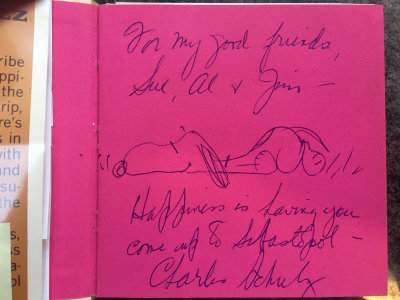 z
ribe
ppi-
the
rip,
re's
s in
with
and
su-
the
s,
is
a-
ol
For my good friends,
Sue, Al & Jim —
Happiness is having you
come up to Sebastopol —
Charles Schulz